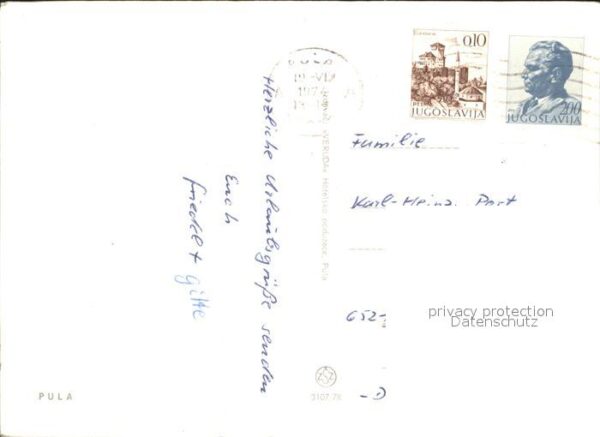 Herzliche Urlaubsgrüße senden
Euch
Friedel + Gitte
PULA
WERUDA« Hotelsko poduzeće, Pula
3107/78
PULA
0,10
JUGOSLAVIJA
2,00
JUGOSLAVIJA
Familie
Karl-Heinz Port
652-
-D
privacy protection
Datenschutz